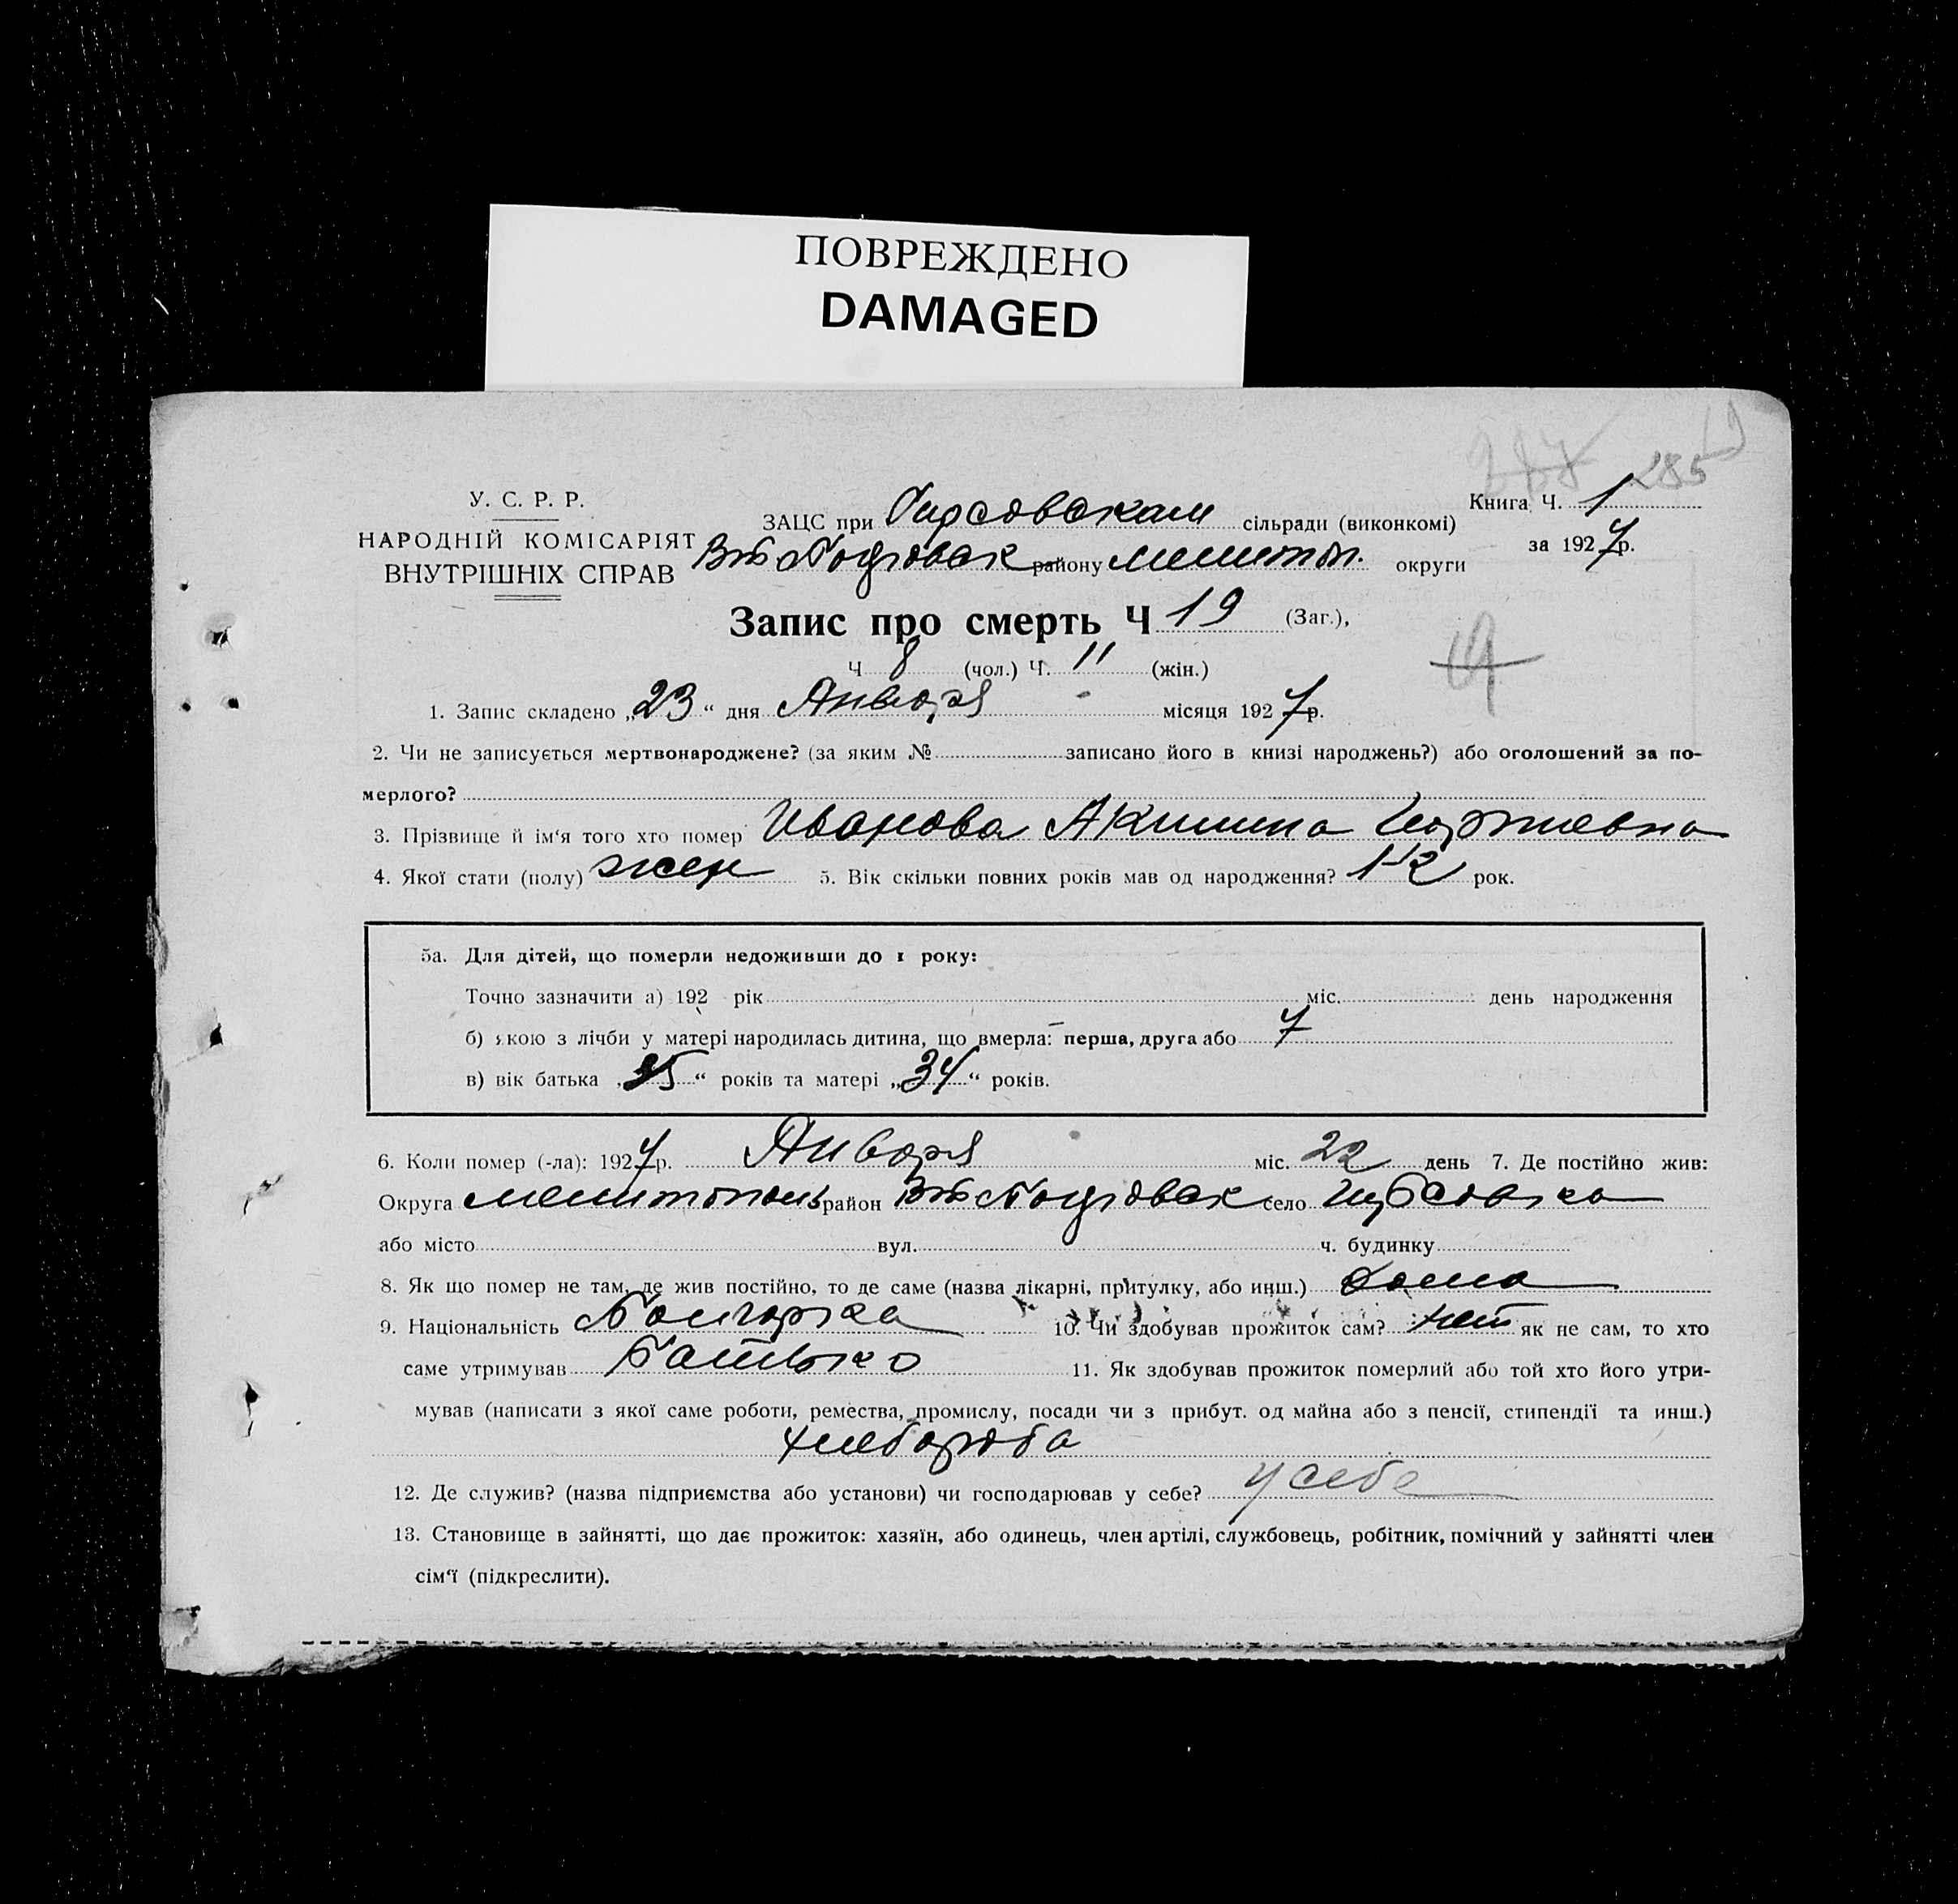 ПОВРЕЖДЕНО
DAMAGED
285
У. С. Р. Р.
НАРОДНІЙ КОМІСАРІЯТ
ВНУТРІШНІХ СПРАВ
ЗАЦС при Гирсовском сільради (виконкомі)
району Мелитоп. округи
Книга Ч. 1
за 1927 р.
Запис про смерть Ч 19 (Заг.),
Ч 8 (чол.) Ч. 11 (жін.)
19
1. Запис складено „23“ дня Января місяця 1927 р.
2. Чи не записується мертвонароджене? (за яким № записано його в книзі народжень?) або оголошений за по-
мерлого?
3. Прізвище й ім‘я того хто помер Иванова Акилина
4. Якої стати (полу) жен 5. Вік скільки повних років мав од народження? рок.
5а. Для дітей, що померли недоживши до 1 року:
Точно зазначити а) 192 рік міс. день народження
б) якою з лічби у матері народилась дитина, що вмерла: перша, друга або 7
в) вік батька „35“ років та матері „34“ років.
6. Коли помер (-ла): 1927 р. Января міс. 22 день 7. Де постійно жив:
Округа Мелитополь район село Гирсовка
або місто вул. ч. будинку
8. Як що помер не там, де жив постійно, то де саме (назва лікарні, притулку, або инш.) Дома
9. Національність Болгарка 10. Чи здобував прожиток сам? нет як не сам, то хто
саме утримував Батько 11. Як здобував прожиток померлий або той хто його утри-
мував (написати з якої саме роботи, ремества, промислу, посади чи з прибут. од майна або з пенсії, стипендії та инш.)
хлебороба
12. Де служив? (назва підприємства або установи) чи господарював у себе? у себе
13. Становище в зайнятті, що дає прожиток: хазяїн, або одинець, член артілі, службовець, робітник, помічний у зайнятті член
сім‘ї (підкреслити).